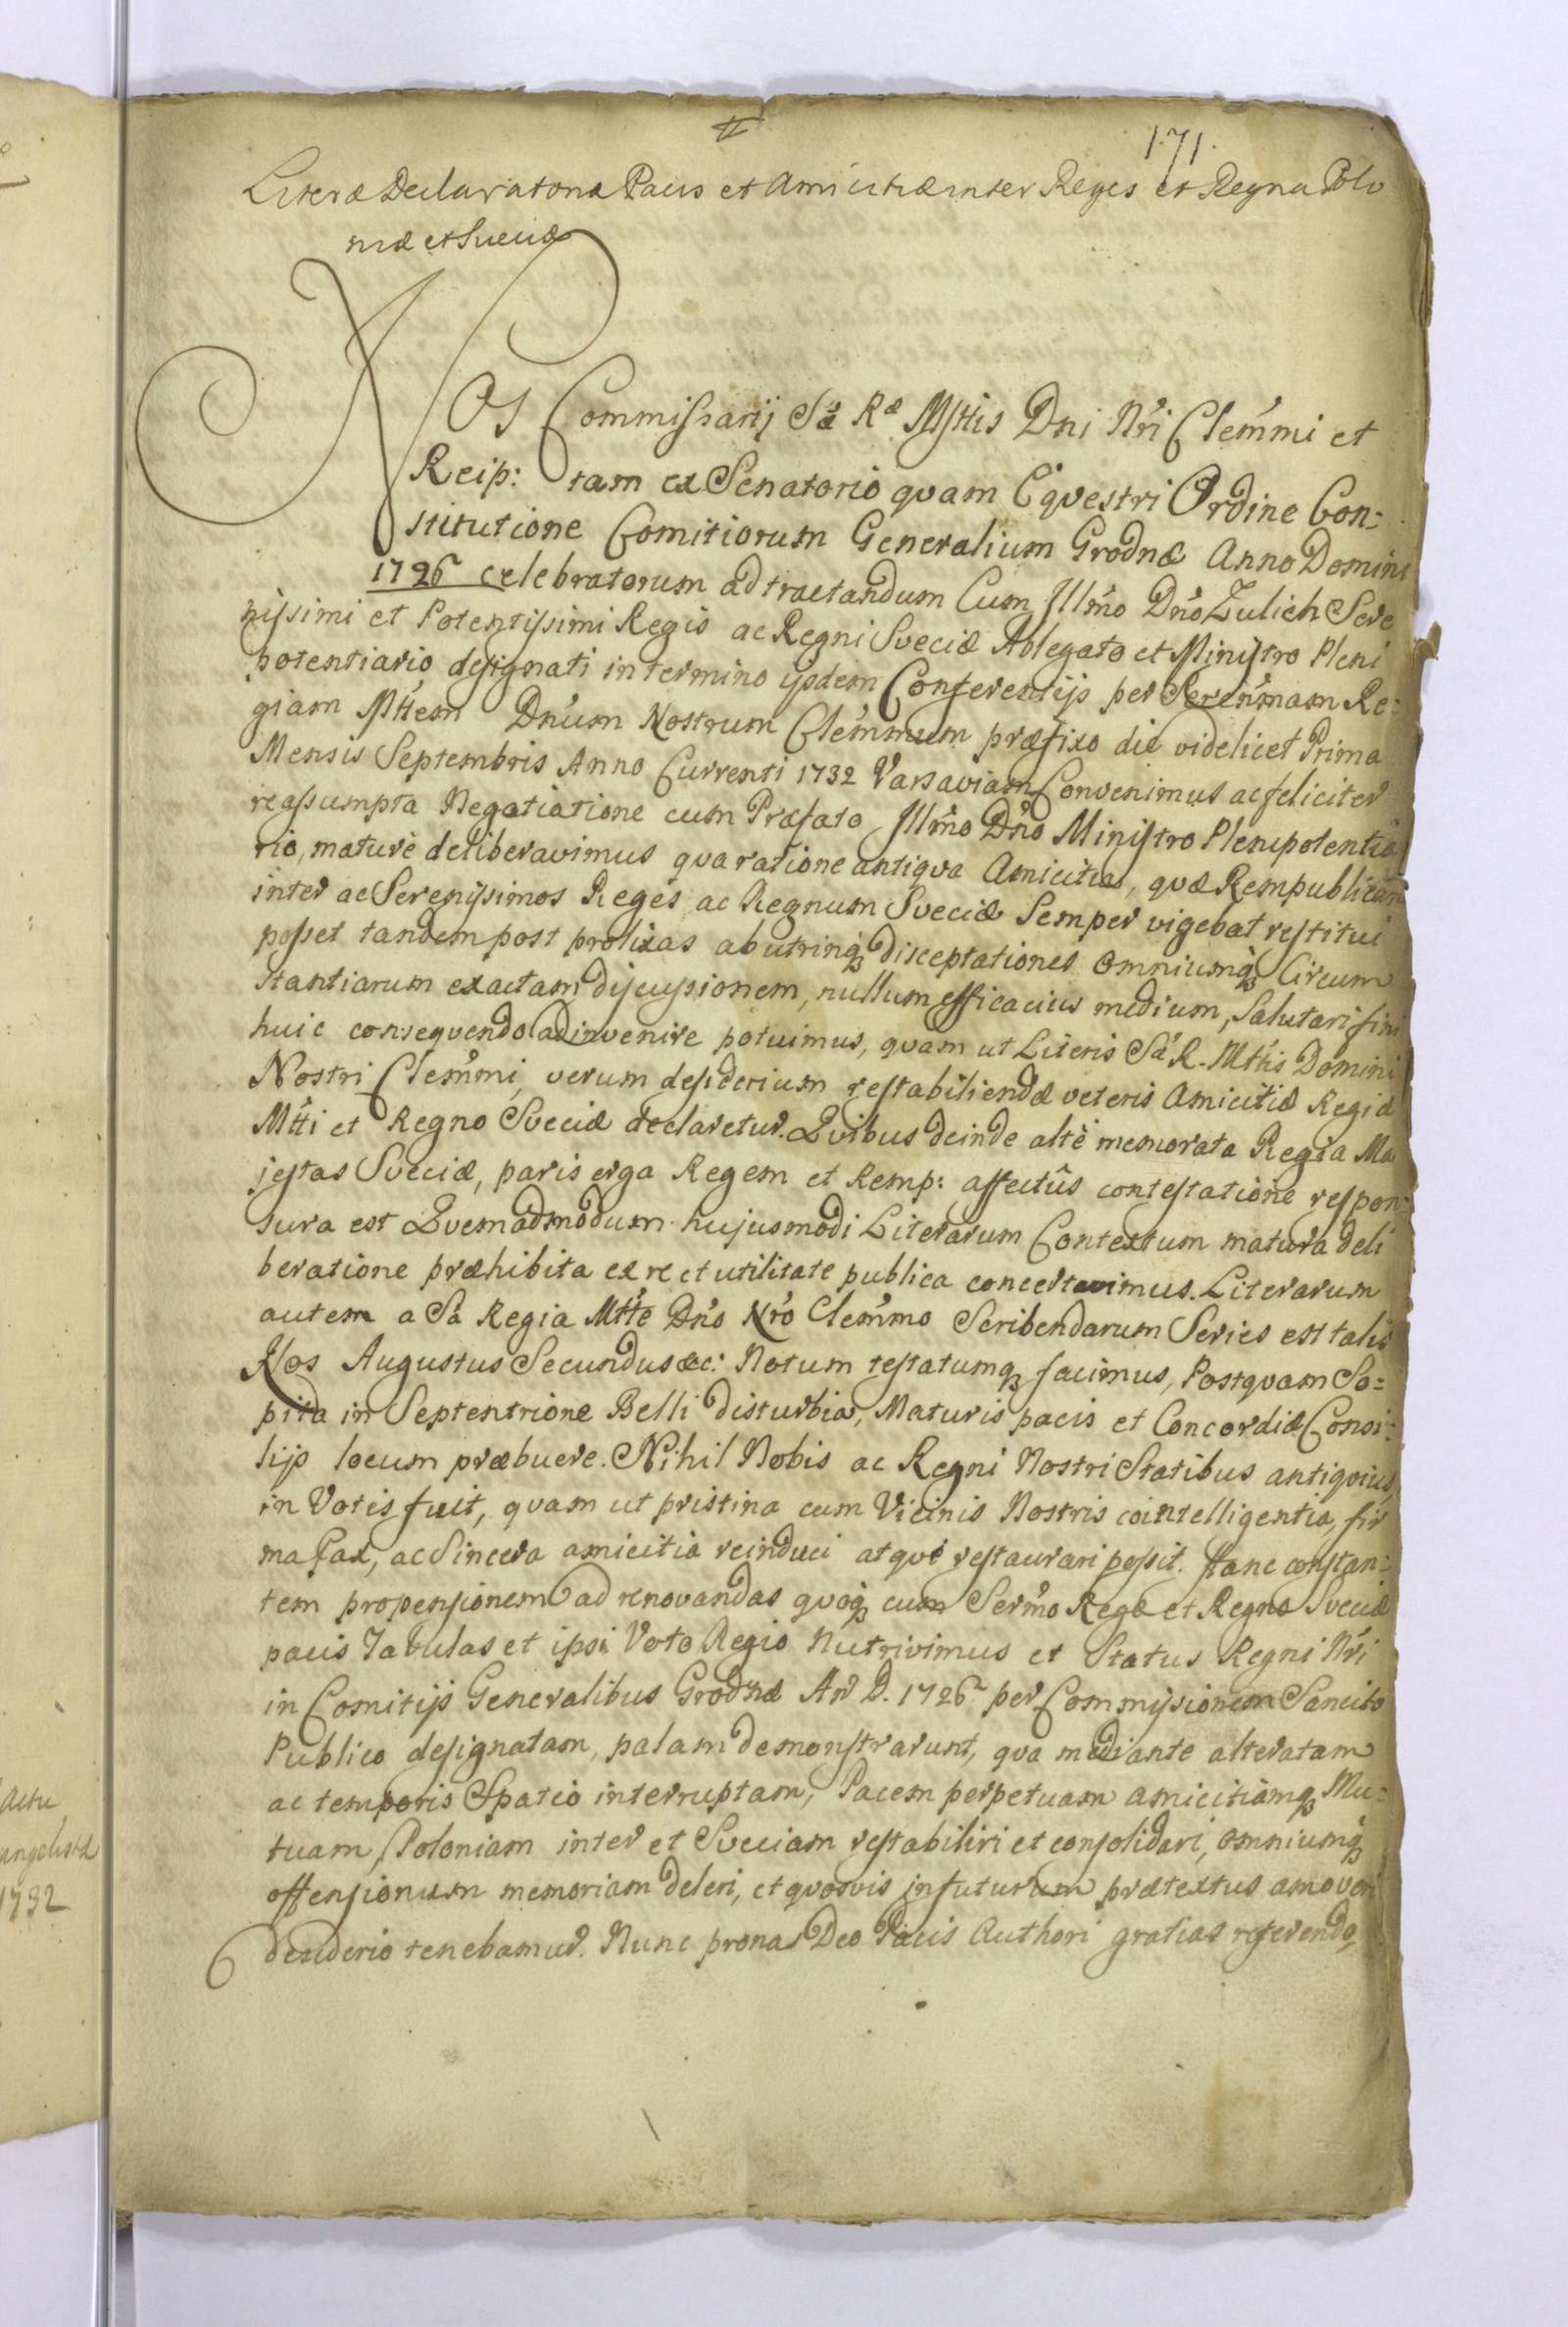 171.
Literæ Declaratoriæ Pacis et Amicitiæ inter Reges et Regna Polo
niæ et Sueciæ
NOS Commissarij Sæ Ræ Mttis Dni Nri Clemmi et
Reip: tam ex Senatorio qvam Eqvestri Ordine Con=
stitutione Comitiorum Generalium Grodnæ Anno Domini
1726 celebratorum ad tractandum Cum Illmo Dno Zulich Sere
nissimi et Potentissimi Regis ac Regni Sveciæ Ablegato et Ministro Pleni
potentiario designati in termino ijsdem Conferentijs per Serenmam Re=
giam Mttem Dnum Nostrum Clemmum præfixo die videlicet Prima
Mensis Septembris Anno Currenti 1732 Varsaviam Convenimus ac feliciter
reassumpta Negotiatione cum Præfato Illmo Dno Ministro Plenipotentia
rio, maturè deliberavimus qva ratione antiqva Amicitia, qvæ Rempublicam
inter ac Serenissimos Reges ac Regnum Sveciæ Semper vigebat restitui
posset tandem post prolixas ab utrinq disceptationes omniumq Circum
stantiarum exactam discussionem, nullum efficacius medium, Salutari fini
huic conseqvendo adinvenire potuimus, qvam ut Literis Sæ R. Mttis Domini
Nostri Clemmi, verum desiderium restabiliendæ veteris Amicitiæ Regiæ
Mtti et Regno Sveciæ declaretur. Qvibus deinde altè memorata Regia Ma
jestas Sveciæ, paris erga Regem et Remp: affectûs contestatione respon=
sura est Qvemadmodum hujusmodi Literarum Contextum matura deli
beratione præhibita ex re et utilitate publica concertavimus. Literarum
autem a Sa Regia Mtte Dno Nro Clemmo Scribendarum Series est talis
Nos Augustus Secundus &c: Notum testatumq facimus, Postqvam So=
pita in Septentrione Belli disturbia, Maturis pacis et Concordiæ Consi=
lijs locum præbuere. Nihil Nobis ac Regni Nostri Statibus antiqvius,
in Votis fuit, qvam ut pristina cum Vicinis Nostris cointelligentia, fir
ma Pax, ac Sincera amicitia reinduci atqve restaurari possit. Hanc constan=
tem propensionem ad renovandas qvoq cum Sermo Rege et Regno Sveciæ
pacis Tabulas et ipsi Voto Regio Nutrivimus et Status Regni Nri
in Comitijs Generalibus Grodnæ An D. 1726 per Commissionem Sancito
Publico designatam, palam demonstrarunt, qva mediante alteratam
ac temporis Spatio interruptam, Pacem perpetuam amicitiamq Mu=
tuam Poloniam inter et Sveciam restabiliri et consolidari, omniumq
offensionum memoriam deleri, et qvosvis in futurum prætextus amoveri
desiderio tenebamur. Nunc pronas Deo Pacis Authori gratias referendo,
Actu
angelistæ
1732